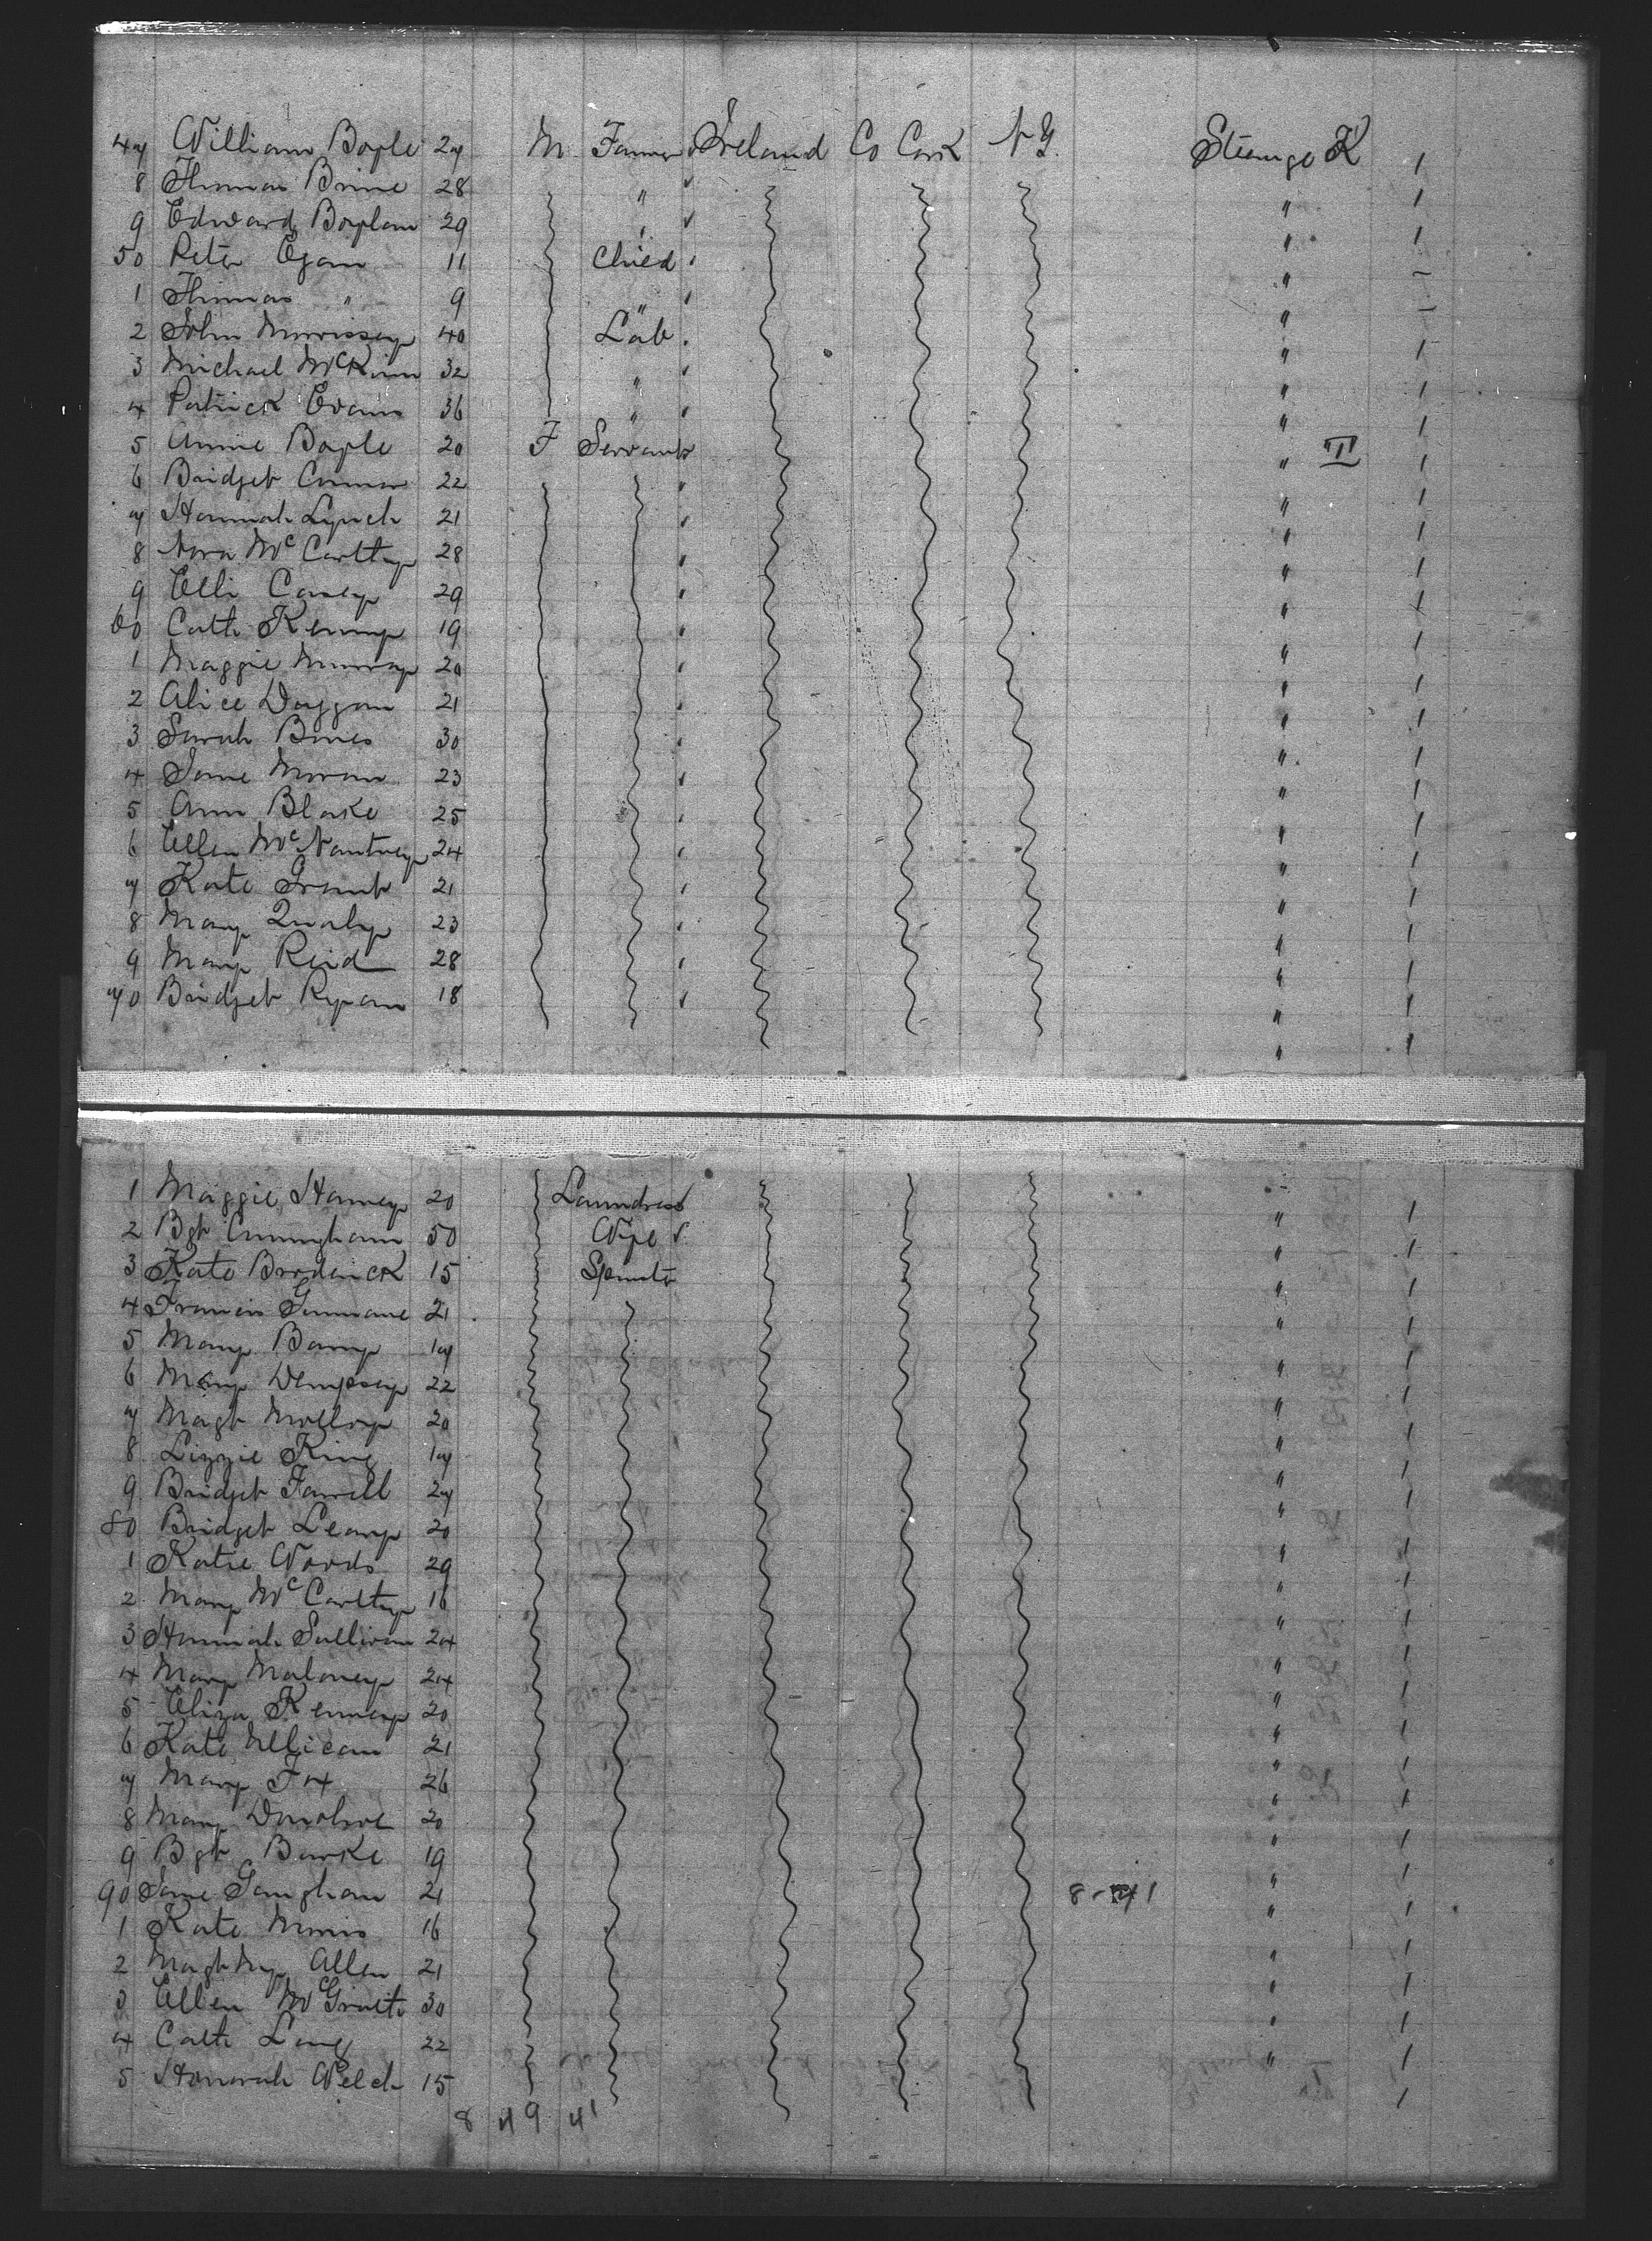 47 William Boyle 27 M Farmer Ireland Co Cork N Y. Steerage K 1
8 Thomas Brine 28 " " 1
9 Edward Boylan 29 " " 1
50 Peter Egan 11 Child "
1 Thomas " 9 " "
2 John Morrissey 40 Lab. " 1
3 Michael McKinn 32 " " 1
4 Patrick Evans 36 " " 1
5 Annie Boyle 20 F Servant " II 1
6 Bridget Connor 22 " 1
7 Hannah Lynch 21 " 1
8 Nora McCarthy 28 " 1
9 Elli Casey 29 " 1
60 Cath Kenny 19 " 1
1 Maggie Murray 20 " 1
2 Alice Duggan 21 " 1
3 Sarah 30 " 1
4 Jane Moran 23 " 1
5 Ann Blake 25 " 1
6 Ellen 24 " 1
7 Kate Grant 21 " 1
8 Mary Qualy 23 " 1
9 Mary Reid 28 " 1
70 Bridget Ryan 18 " 1
1 Maggie Harvey 20 Laundress " 1
2 Bgt Cunningham 50 Wife " 1
3 Kate Broderick 15 " 1
4 Francis 21 " 1
5 Mary Barry 17 " 1
6 Mary Dempsey 22 " 1
7 Magt Molloy 20 " 1
8 Lizzie King 17 " 1
9 Bridget Farrell 27 " 1
80 Bridget Leary 20 " 1
1 Katie Woods 29 " 1
2 Mary McCarthy 16 " 1
3 Hannah Sullivan 24 " 1
4 Mary Maloney 24 " 1
5 Eliza Kenney 20 " 1
6 Kate Millican 21 " 1
7 Mary Fox 26 " 1
8 Mary Donohoe 20 " 1
9 Bgt Burke 19 " 1
90 Jane Gaughan 21 " 1
1 Kate 16 " 1
2 Allen 21 " 1
3 Ellen McGrath 30 " 1
4 Cath Long 22 " 1
5 Honorah Welch 15 1
8 49 41